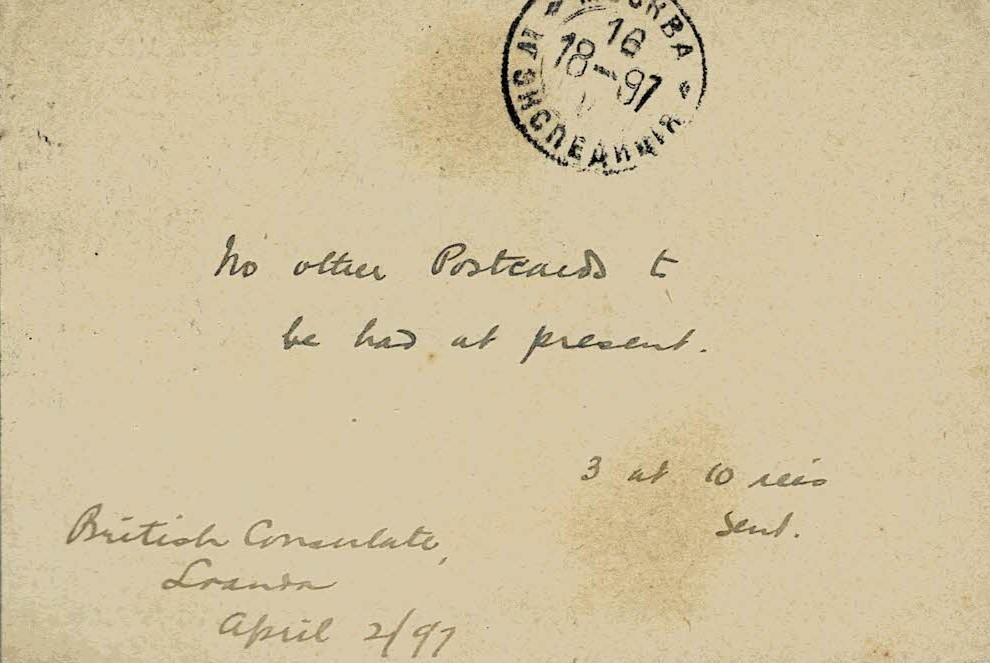 МОСКВА
16
18-97
ЭКСПЕДИЦІЯ
No other Postcards to
be had at present.
3 at 10 reis
sent.
British Consulate,
Loanda
April 2/97